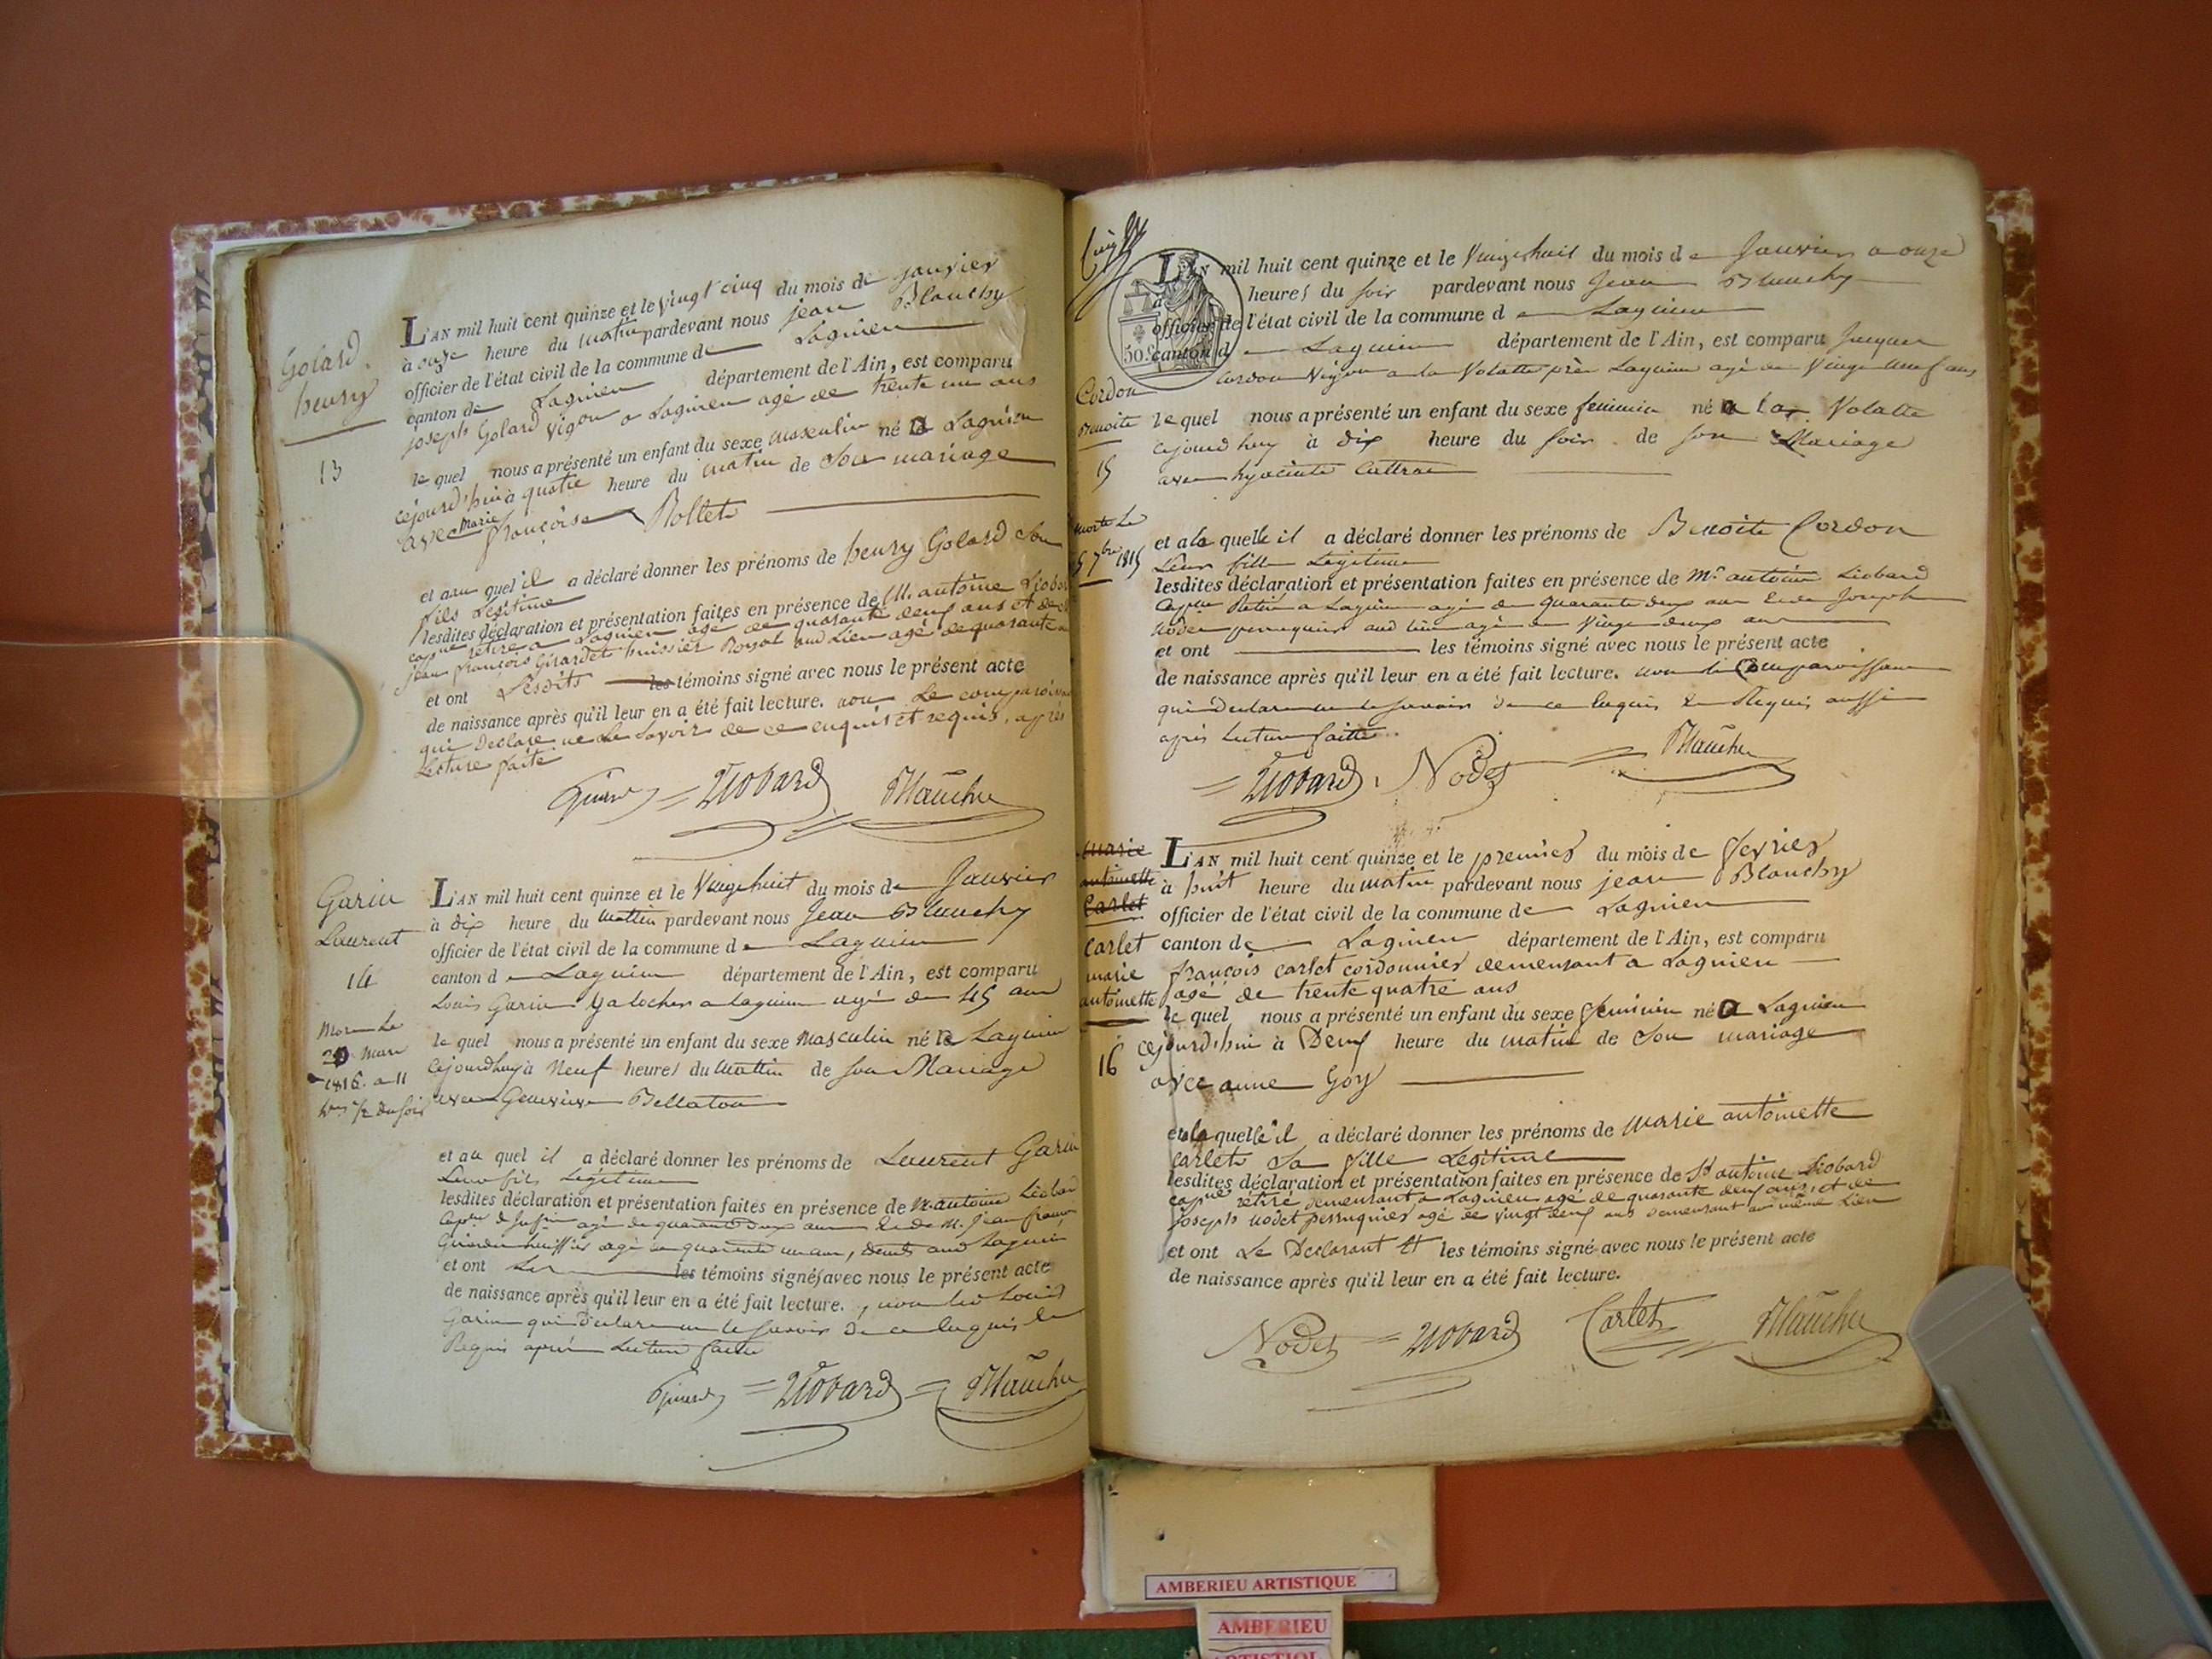 Golard
henry
13
L'AN mil huit cent quinze et le vingt cinq du mois de janvier
à onze heure du matin pardevant nous jean Blanchy
officier de l'état civil de la commune de Lagnieu
canton de Lagnieu département de l'Ain, est comparu
joseph Golard vigon a Lagnieu agé de trente un ans
le quel nous a présenté un enfant du sexe masculin né a Lagnieu
cejourd'hui à quatre heure du matin de son mariage
avec marie françoise Rollet
et au quel il a déclaré donner les prénoms de henry Golard son
fils Légitime
lesdites déclaration et présentation faites en présence de M. antoine Liobard
capne retiré a Lagnieu agé de quarante deux ans et de
jean françois Girardet huissier Royal aud Lieu agé de quarante
et ont Lesdits les témoins signé avec nous le présent acte
de naissance après qu'il leur en a été fait lecture. non Le comparoissant
qui Declare ne Le savoir de ce enquis et requis, après
Lecture faite
Liobard Blanchy
Garin
Laurent
14
Mort Le
20 Mars
1816. a 11
hres 1/2 du soir
L'AN mil huit cent quinze et le Vingt huit du mois de Janvier
à dix heure du mattin pardevant nous Jean Blanchy
officier de l'état civil de la commune de Lagnieu
canton de Lagnieu département de l'Ain, est comparu
Louis Garin Galocher a Lagnieu agé de 45 ans
le quel nous a présenté un enfant du sexe Masculin né a Lagnieu
cejourdhuy à Neuf heures du mattin de son Mariage
avec Genevieve Bellaton
et au quel il a déclaré donner les prénoms de Laurent Garin
Leur fils Légitime
lesdites déclaration et présentation faites en présence de M. antoine Liobard
agé de quarante deux ans et de M. jean françois
Girardet huissier agé de quarante un ans, demts aud Lagnieu
et ont Les les témoins signés avec nous le présent acte
de naissance après qu'il leur en a été fait lecture., non led Louis
Garin qui Declare ne le savoir de ce Enquis et
Requis après Lecture faitte
Liobard Blanchy
50 c
Cordon
Benoite
15
morte Le
5 7bre 1815
L'AN mil huit cent quinze et le Vingt huit du mois de Janvier a onze
heures du soir pardevant nous Jean Blanchy
officier de l'état civil de la commune de Lagnieu
canton de Lagnieu département de l'Ain, est comparu Jacques
Cordon Vigon a la Volatte près Lagnieu agé de Vingt neuf ans
le quel nous a présenté un enfant du sexe feminin né a la Volatte
cejourdhuy à dix heure du soir de son Mariage
avec hyacinte
et a la quelle il a déclaré donner les prénoms de Benoite Cordon
Leur fille Légitime
lesdites déclaration et présentation faites en présence de Mr antoine Liobard
Capne Retiré a Lagnieu agé de Quarante deux ans et de Joseph
Nodet perruquier aud lieu agé de Vingt deux ans
et ont les témoins signé avec nous le présent acte
de naissance après qu'il leur en a été fait lecture. non le Comparoissant
qui Declare ne le savoir de ce Enquis et Requis aussi
après Lecture faitte
Liobard Nodet Blanchy
marie
antoinette
Carlet
Carlet
marie
antoinette
16
L'AN mil huit cent quinze et le premier du mois de fevrier
à huit heure du matin pardevant nous jean Blanchy
officier de l'état civil de la commune de Lagnieu
canton de Lagnieu département de l'Ain, est comparu
françois carlet cordonnier demeurant a Lagnieu
agé de trente quatre ans
le quel nous a présenté un enfant du sexe feminin né a Lagnieu
cejourd'hui à Deux heure du matin de son mariage
avec anne Goy
et a la quelle il a déclaré donner les prénoms de marie antoinette
carlet sa fille Legitime
lesdites déclaration et présentation faites en présence de Sr antoine Liobard
capne retiré demeurant a Lagnieu agé de quarante deux ans, et de
joseph nodet perruquier agé de vingt deux ans demeurant au même Lieu
et ont Le Declarant et les témoins signé avec nous le présent acte
de naissance après qu'il leur en a été fait lecture.
Nodet Liobard Carlet Blanchy
AMBERIEU ARTISTIQUE
AMBERIEU
ARTISTIQUE